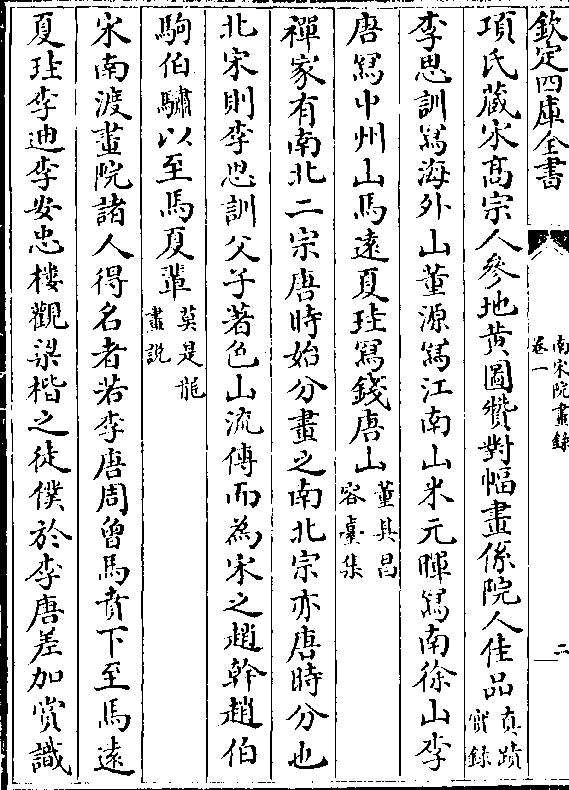 欽定四庫全書
南宋院畫錄
卷一
二
項氏藏宋髙宗人參地黄圖贊對幅畫係院人佳品真蹟實錄
李思訓寫海外山董源寫江南山米元暉寫南徐山李
唐寫中州山馬遠夏珪寫錢唐山董其昌容臺集
禪家有南北二宗唐時始分畫之南北宗亦唐時分也
北宋則李思訓父子著色山流傳而為宋之趙幹趙伯
駒伯驌以至馬夏輩莫是龍畫説
宋南渡畫院諸人得名者若李唐周曾馬賁下至馬遠
夏珪李迪李安忠樓觀梁楷之徒僕於李唐差加賞識